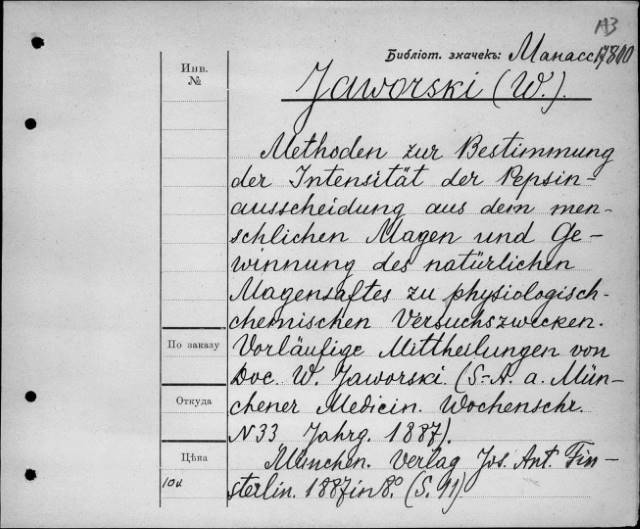 АЗ
Библіот. значекъ: Манасс. 17800
Инв.
№
Jaworski (W.).
Methoden zur Bestimmung
der Intensität der Pepsin-
ausscheidung aus dem men-
schlichen Magen und Ge-
winnung des natürlichen
Magensaftes zu physiologisch-
chemischen Versuchszwecken.
По заказу
Vorläufige Mittheilungen von
Doc. W. Jaworski. (S.-A. a. Mün-
Откуда
chener Medicin. Wochenschr.
N 33 Jahrg. 1887).
Цѣна
München. Verlag Jos. Ant. Fin-
sterlin. 1887 in 8.° (S. 11)